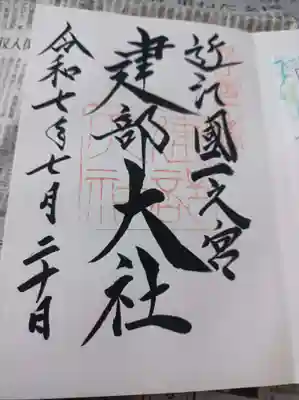 近江國一之宮
建部大社
令和七年七月二十日